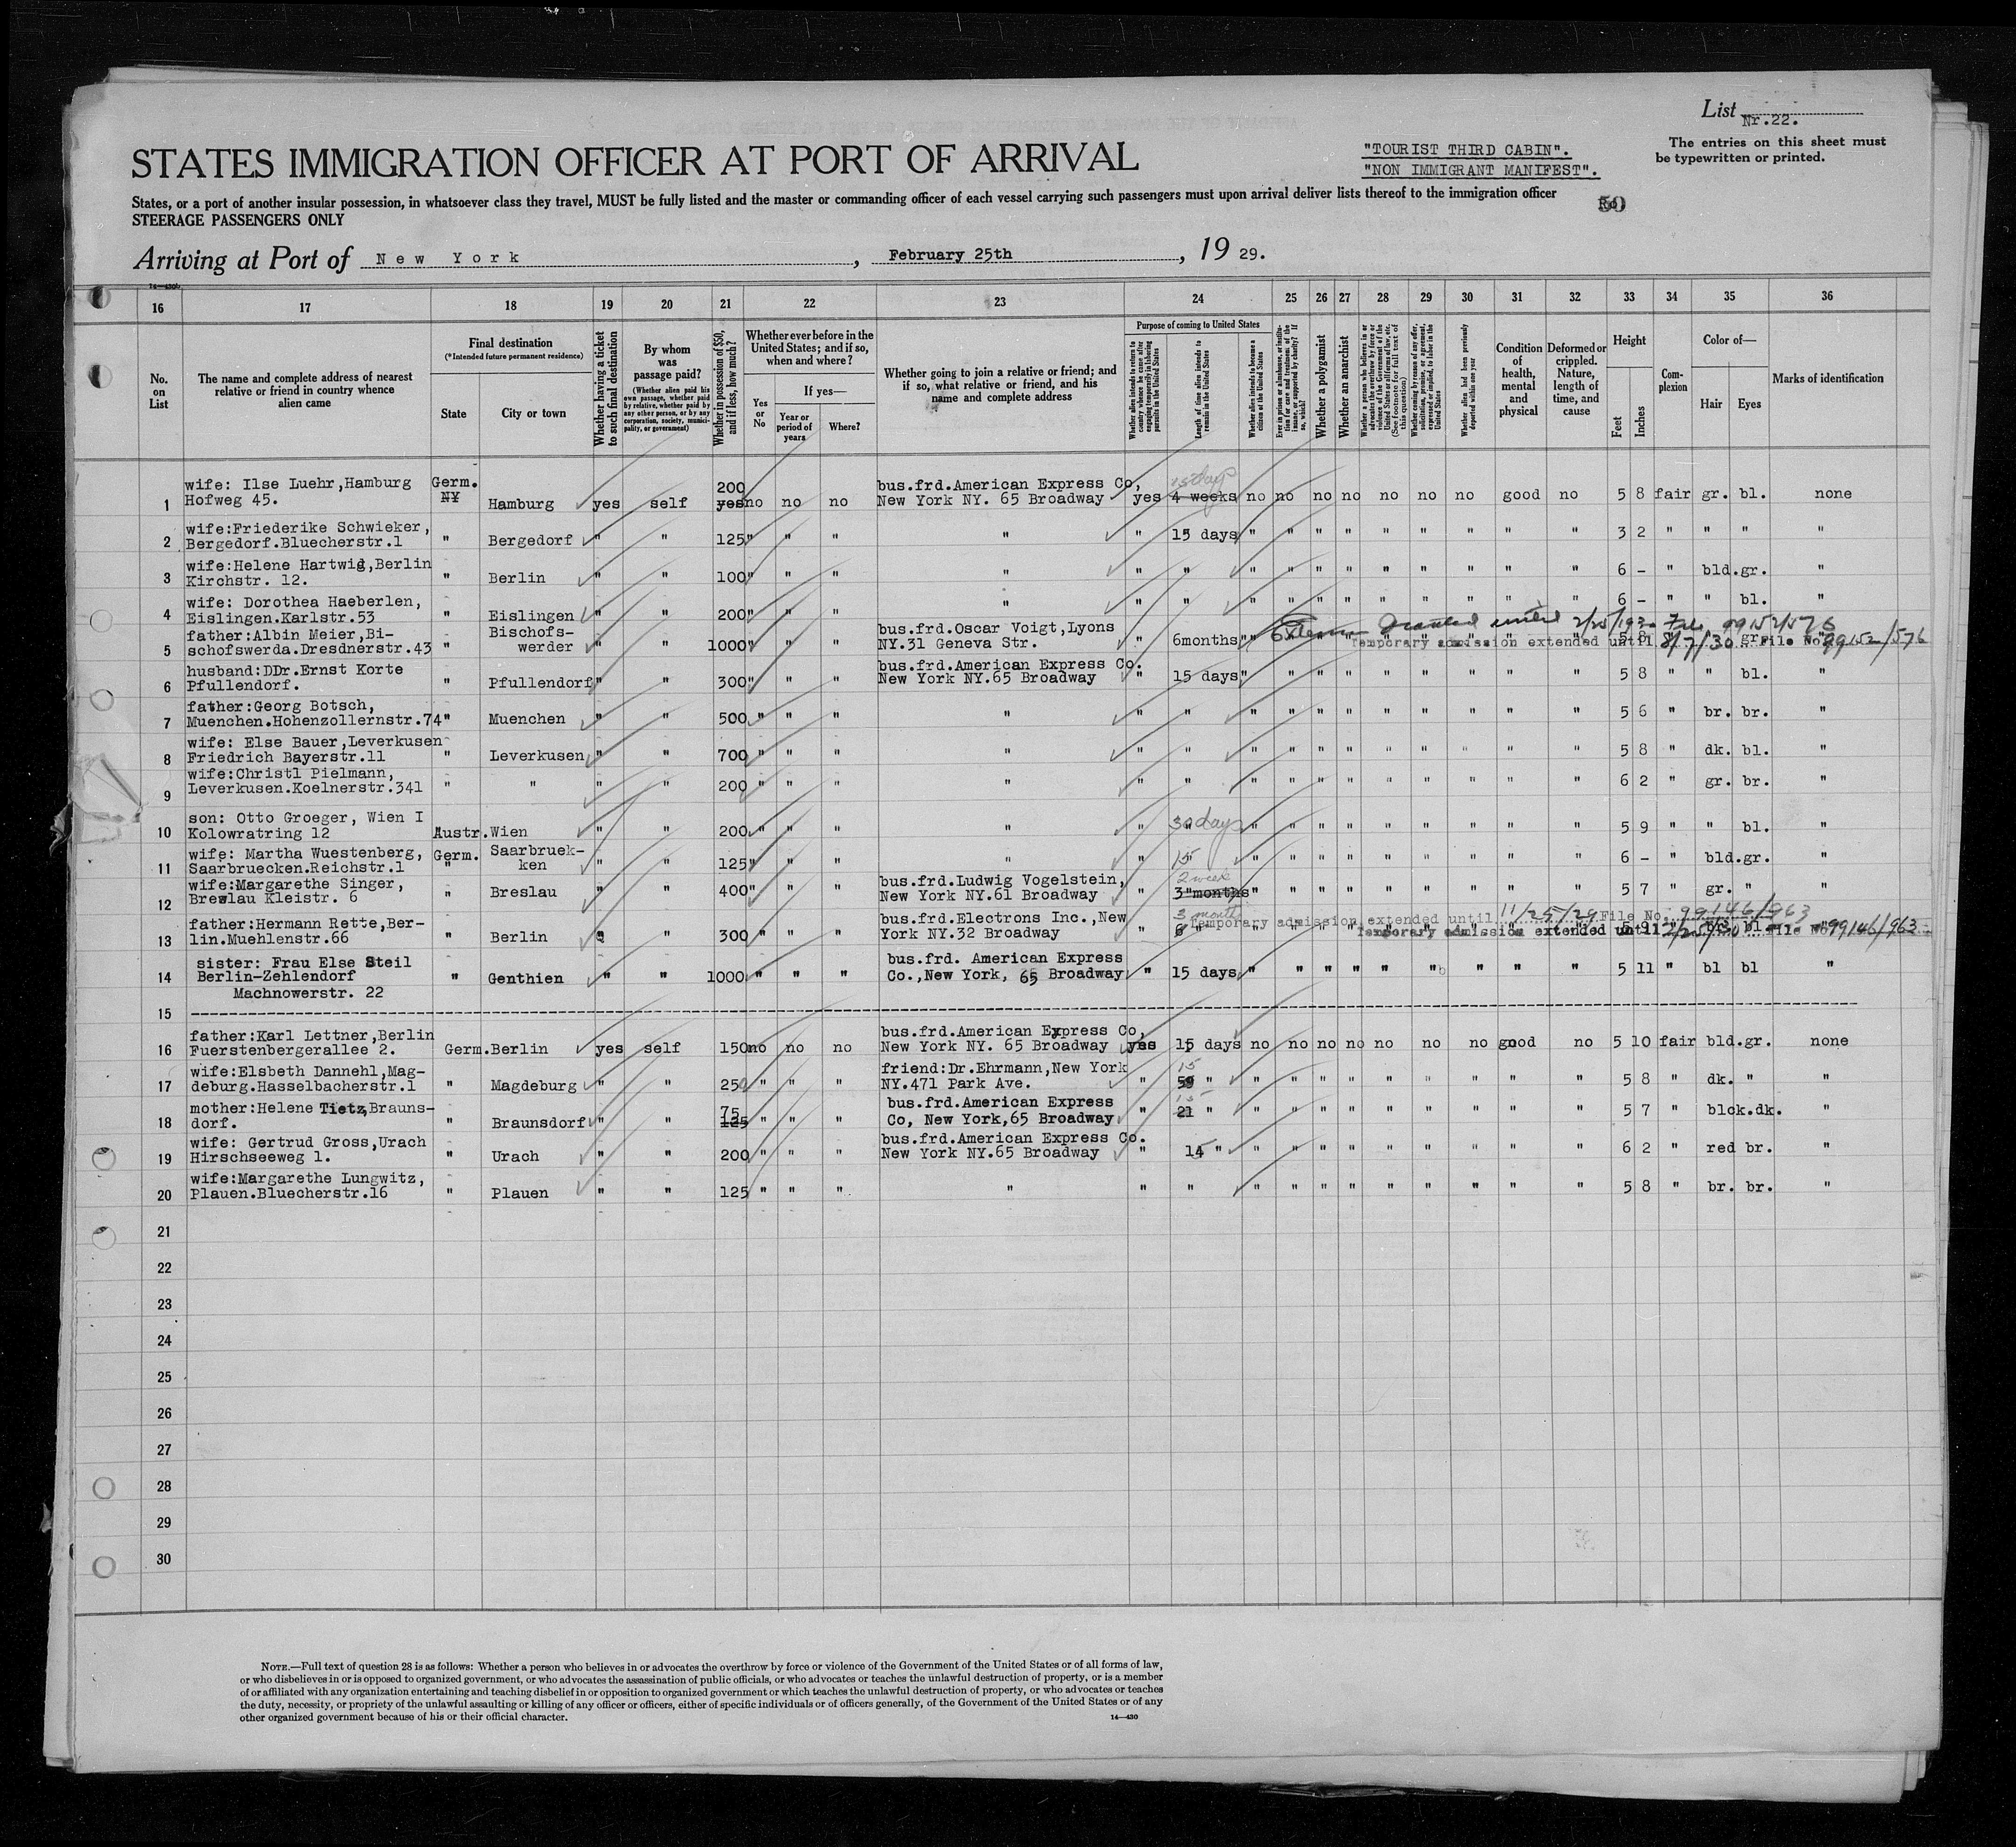 List Nr.22.
The entries on this sheet must
be typewritten or printed.
STATES IMMIGRATION OFFICER AT PORT OF ARRIVAL
"TOURIST THIRD CABIN".
"NON IMMIGRANT MANIFEST".
States, or a port of another insular possession, in whatsoever class they travel, MUST be fully listed and the master or commanding officer of each vessel carrying such passengers must upon arrival deliver lists thereof to the immigration officer
STEERAGE PASSENGERS ONLY
Arriving at Port of New York, February 25th, 19 29.
16 17 18 19 20 21 22 23 24 25 26 27 28 29 30 31 32 33 34 35 36
No. on List
The name and complete address of nearest relative or friend in country whence alien came
Final destination
(*Intended future permanent residence)
State
City or town
Whether having a ticket to such final destination
By whom was passage paid?
(Whether alien paid his own passage, whether paid by relative, whether paid by any other person, or by any corporation, society, municipality, or government)
Whether in possession of $50, and if less, how much?
Whether ever before in the United States; and if so, when and where?
Yes or No
If yes—
Year or period of years
Where?
Whether going to join a relative or friend; and if so, what relative or friend, and his name and complete address
Purpose of coming to United States
Whether alien intends to return to country whence he came after engaging temporarily in laboring pursuits in the United States
Length of time alien intends to remain in the United States
Whether alien intends to become a citizen of the United States
Ever in prison or almshouse, or institution for care and treatment of the insane, or supported by charity? If so, which?
Whether a polygamist
Whether an anarchist
Whether a person who believes in or advocates the overthrow by force or violence of the Government of the United States or all forms of law, etc. (See footnote for full text of this question)
Whether coming by reason of any offer, solicitation, promise, or agreement, expressed or implied, to labor in the United States
Whether alien had been previously deported within one year
Condition of health, mental and physical
Deformed or crippled. Nature, length of time, and cause
Height
Feet
Inches
Complexion
Color of—
Hair
Eyes
Marks of identification
1 wife: Ilse Luehr,Hamburg Hofweg 45. Germ. NY Hamburg yes self 200 yes no no no bus.frd.American Express Co, New York NY. 65 Broadway yes 15 days 4 weeks no no no no no no no good no 5 8 fair gr. bl. none
2 wife:Friederike Schwieker, Bergedorf.Bluecherstr.1 " Bergedorf " " 125 " " " " " 15 days " " " " " " " " " 3 2 " " " "
3 wife:Helene Hartwig,Berlin Kirchstr. 12. " Berlin " " 100 " " " " " " " " " " " " " " " 6 - " bld.gr. "
4 wife: Dorothea Haeberlen, Eislingen.Karlstr.53 " Eislingen " " 200 " " " " " " " " " " " " " " " 6 - " " bl. "
Extension Granted until 2/25/1930 File 99152/576
5 father:Albin Meier,Bischofswerda.Dresdnerstr.43 " Bischofs-werder " " 1000 " " " bus.frd.Oscar Voigt,Lyons NY.31 Geneva Str. " 6months " " 5 8 gr.
Temporary admission extended until 8/7/30 File No. 99152/576
6 husband:DDr.Ernst Korte Pfullendorf. " Pfullendorf " " 300 " " " bus.frd.American Express Co. New York NY.65 Broadway " 15 days " " " " " " " " " 5 8 " " bl. "
7 father:Georg Botsch, Muenchen.Hohenzollernstr.74 " Muenchen " " 500 " " " " " " " " " " " " " " " 5 6 " br. br. "
8 wife: Else Bauer,Leverkusen Friedrich Bayerstr.11 " Leverkusen " " 700 " " " " " " " " " " " " " " " 5 8 " dk. bl. "
9 wife:Christl Pielmann, Leverkusen.Koelnerstr.341 " " " " 200 " " " " " " " " " " " " " " " 6 2 " gr. br. "
10 son: Otto Groeger, Wien I Kolowratring 12 Austr. Wien " " 200 " " " " " 30 days " " " " " " " " " 5 9 " " bl. "
11 wife: Martha Wuestenberg, Saarbruecken.Reichstr.1 Germ. " Saarbruek-ken " " 125 " " " " " 15 " " " " " " " " " " 6 - " bld.gr. "
12 wife:Margarethe Singer, Breslau Kleistr. 6 " Breslau " " 400 " " " bus.frd.Ludwig Vogelstein, New York NY.61 Broadway " 2 weeks 3 months " " " " " " " " " 5 7 " gr. " "
Temporary admission extended until 11/25/29 File No. 99146/963
13 father:Hermann Rette,Berlin.Muehlenstr.66 " Berlin " " 300 " " " bus.frd.Electrons Inc.,New York NY.32 Broadway " 3 months 6 " " 5 9 bl.
Temporary admission extended until 2/25/30 File No. 99146/963
14 sister: Frau Else Steil Berlin-Zehlendorf Machnowerstr. 22 " Genthien " " 1000 " " " bus.frd. American Express Co.,New York, 65 Broadway " 15 days " " " " " " " " " 5 11 " bl bl "
15
16 father:Karl Lettner,Berlin Fuerstenbergerallee 2. Germ. Berlin yes self 150 no no no bus.frd.American Express Co, New York NY. 65 Broadway yes 15 days no no no no no no no good no 5 10 fair bld.gr. none
17 wife:Elsbeth Dannehl,Magdeburg.Hasselbacherstr.1 " Magdeburg " " 250 " " " friend:Dr.Ehrmann,New York NY.471 Park Ave. " 15 " " " " " " " " " " 5 8 " dk. " "
18 mother:Helene Tietz,Braunsdorf. " Braunsdorf " " 75 125 " " " bus.frd.American Express Co, New York,65 Broadway " 15 21 " " " " " " " " " " 5 7 " blck.dk. "
19 wife: Gertrud Gross,Urach Hirschseeweg 1. " Urach " " 200 " " " bus.frd.American Express Co. New York NY.65 Broadway " 14 " " " " " " " " " " 6 2 " red br. "
20 wife:Margarethe Lungwitz, Plauen.Bluecherstr.16 " Plauen " " 125 " " " " " " " " " " " " " " " 5 8 " br. br. "
21
22
23
24
25
26
27
28
29
30
NOTE.—Full text of question 28 is as follows: Whether a person who believes in or advocates the overthrow by force or violence of the Government of the United States or of all forms of law,
or who disbelieves in or is opposed to organized government, or who advocates the assassination of public officials, or who advocates or teaches the unlawful destruction of property, or is a member
of or affiliated with any organization entertaining and teaching disbelief in or opposition to organized government or which teaches the unlawful destruction of property, or who advocates or teaches
the duty, necessity, or propriety of the unlawful assaulting or killing of any officer or officers, either of specific individuals or of officers generally, of the Government of the United States or of any
other organized government because of his or their official character.
14—430